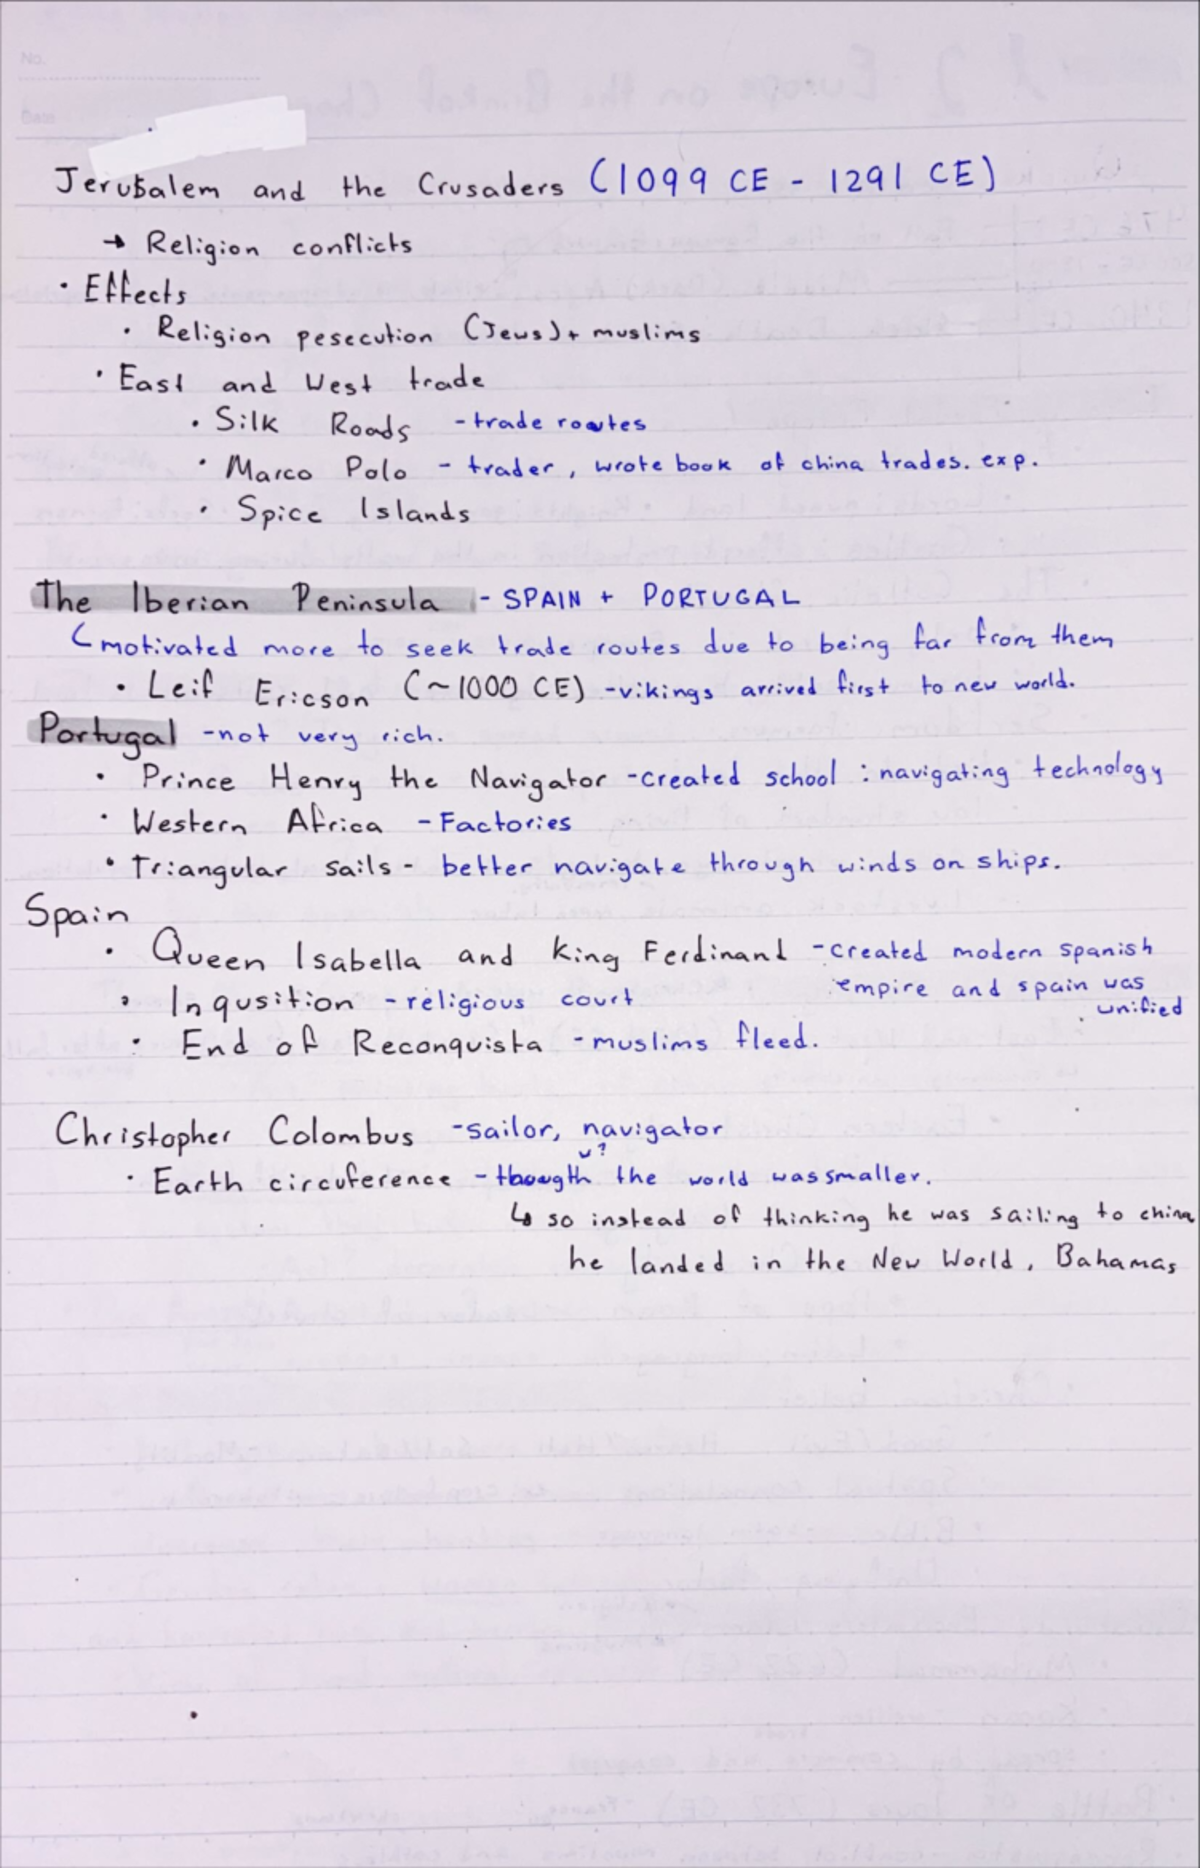 No.
Date
Jerusalem and the Crusaders (1099 CE - 1291 CE)
→ Religion conflicts
• Effects
• Religion pesecution (Jews) + muslims
• East and West trade
• Silk Roads - trade routes
• Marco Polo - trader, wrote book of china trades. exp.
• Spice Islands
The Iberian Peninsula - SPAIN + PORTUGAL
motivated more to seek trade routes due to being far from them
• Leif Ericson (~1000 CE) - vikings arrived first to new world.
Portugal - not very rich.
• Prince Henry the Navigator - created school : navigating technology
• Western Africa - Factories
• Triangular sails - better navigate through winds on ships.
Spain
• Queen Isabella and King Ferdinand - created modern spanish
empire and spain was
unified
• Inqusition - religious court
• End of Reconquista - muslims fleed.
Christopher Colombus - sailor, navigator
u?
• Earth circuference - thougth the world was smaller.
↳ so instead of thinking he was sailing to china
he landed in the New World, Bahamas